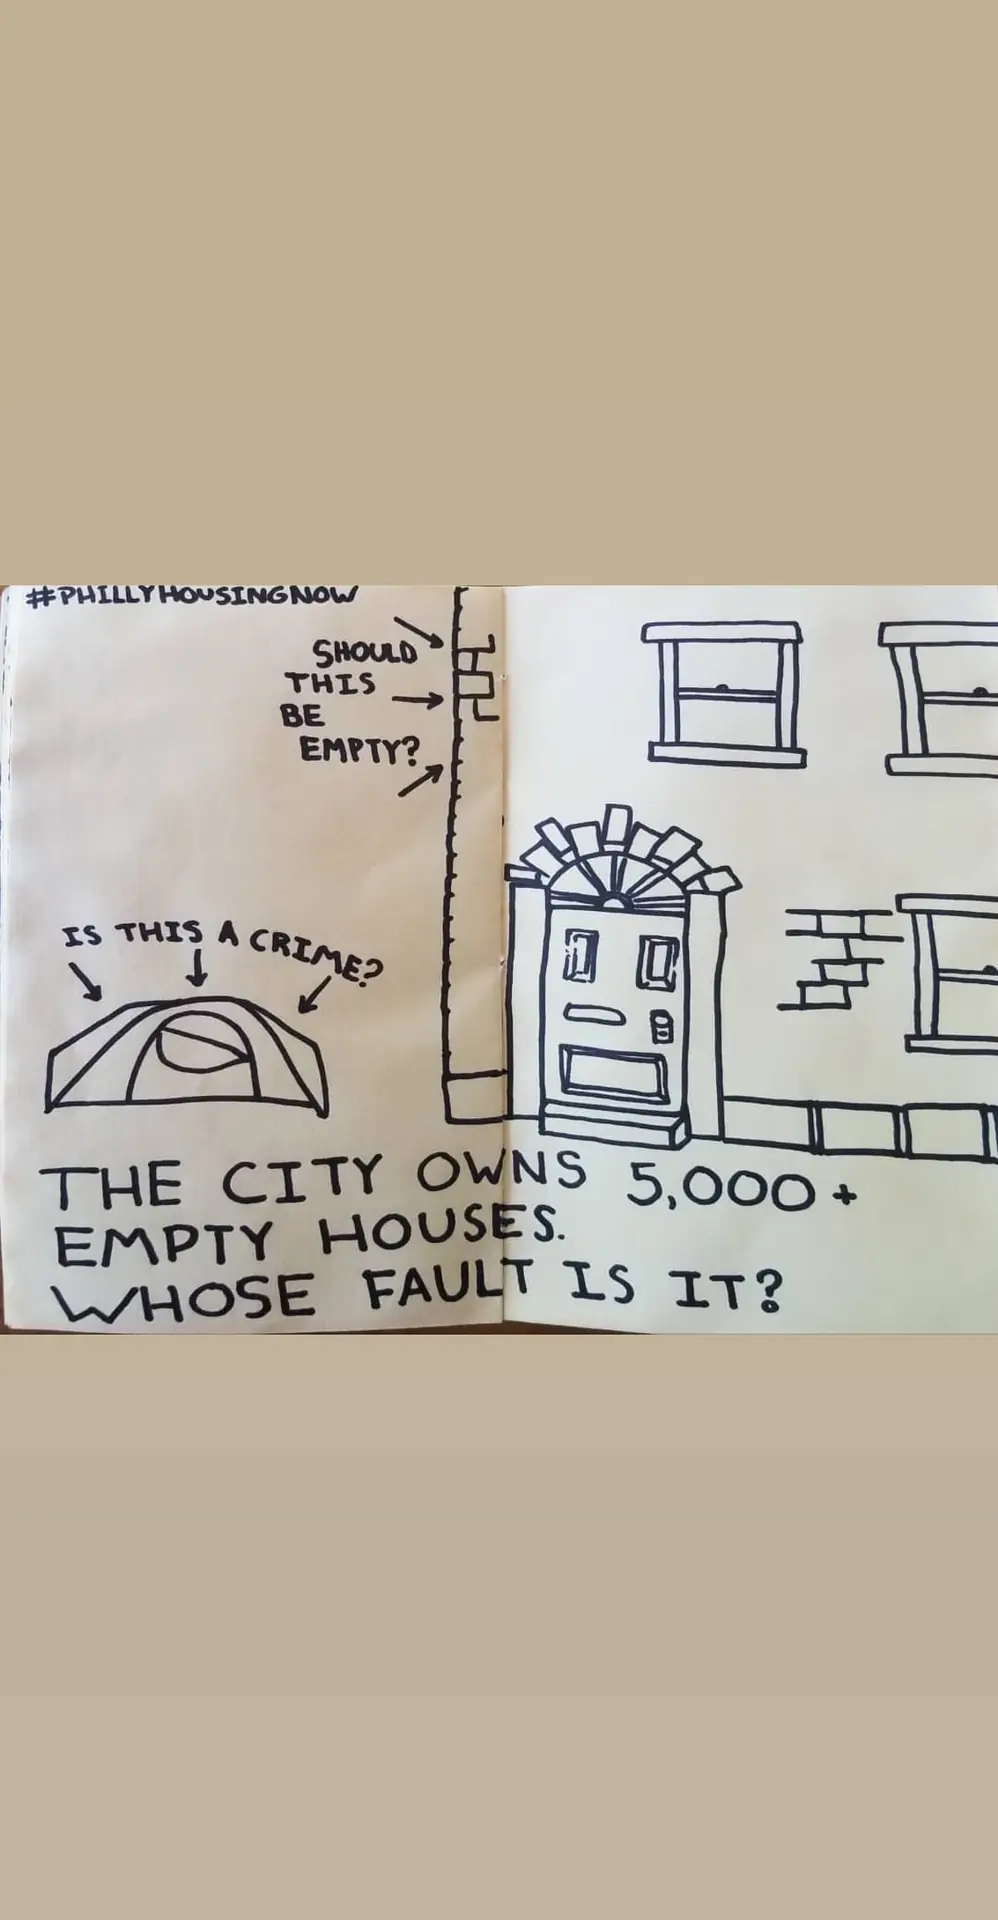 #PHILLYHOUSINGNOW
SHOULD
THIS
BE
EMPTY?
IS THIS A CRIME?
THE CITY OWNS 5,000+
EMPTY HOUSES.
WHOSE FAULT IS IT?